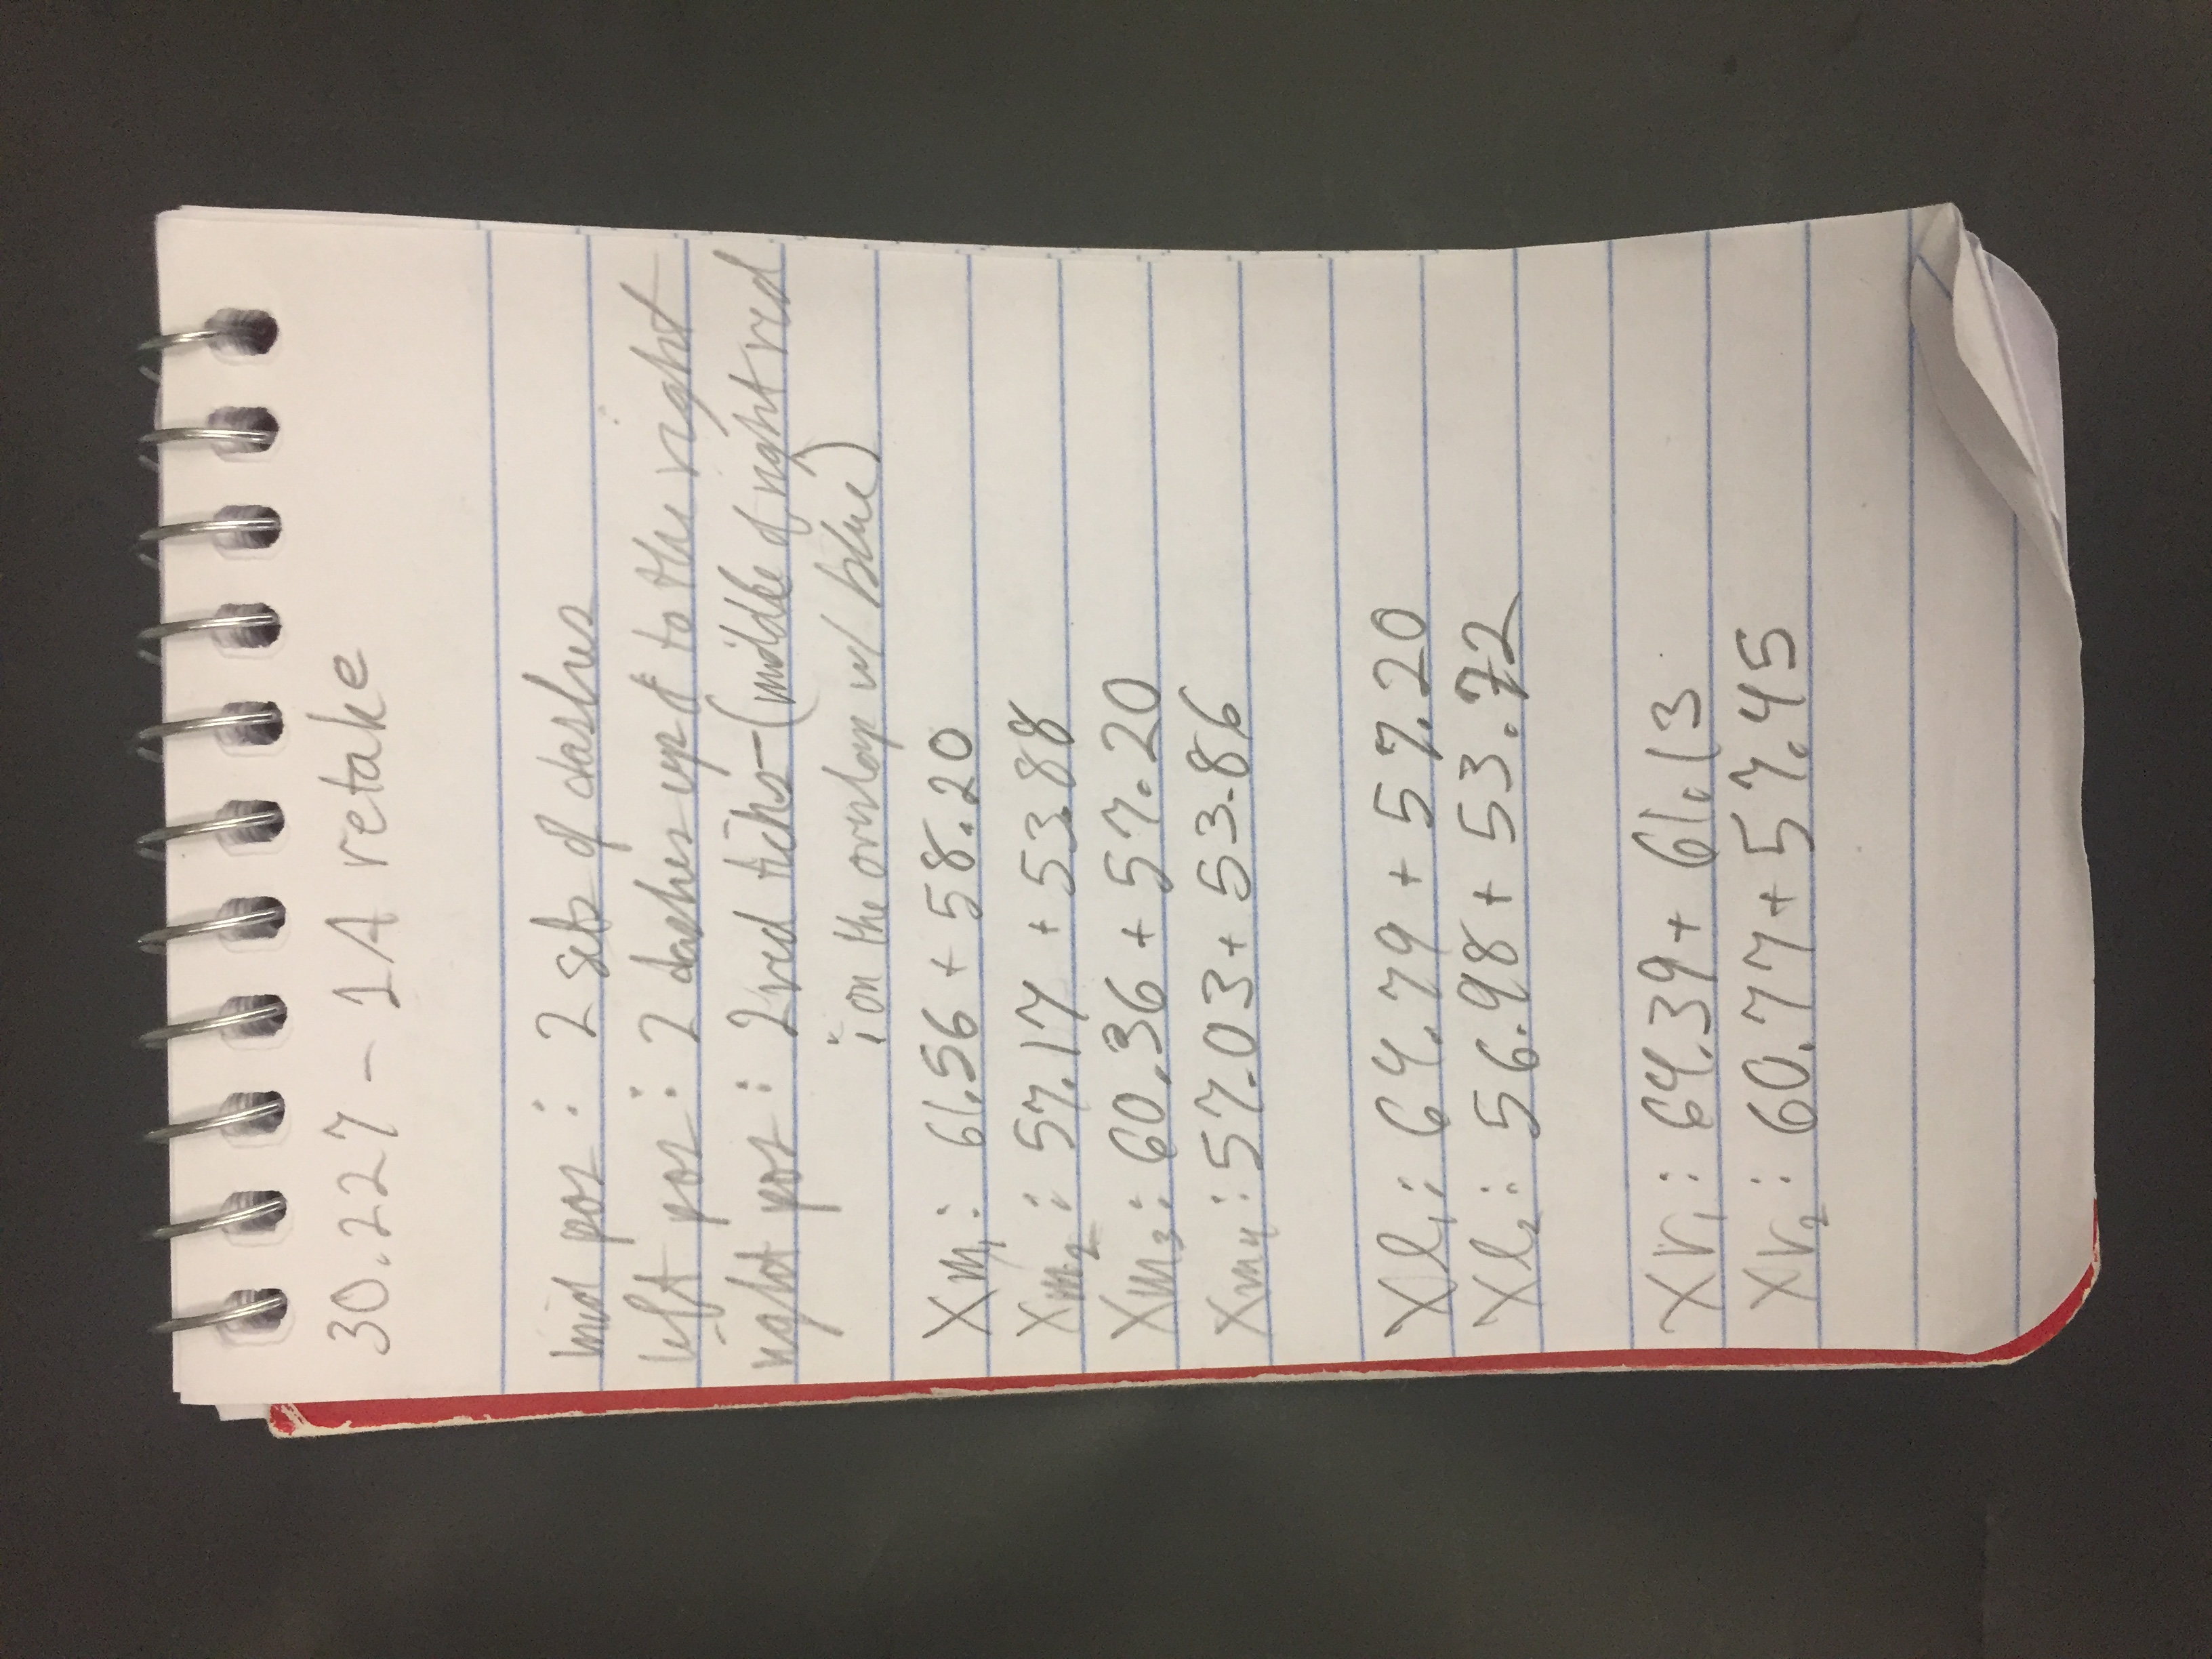 30.227 - 1A retake
mid pos: 2 sets of dashes
left pos: 2 dashes up & to the right
right pos: 2 red ticks - (middle of right red
i on the overlap w/ blue)
Xm1: 61.56 + 58.20
Xm2: 57.17 + 53.88
Xm3: 60.36 + 57.20
Xm4: 57.03 + 53.86
Xl1: 64.79 + 57.20
Xl2: 56.98 + 53.72
Xr1: 64.39 + 61.13
Xr2: 60.77 + 57.45